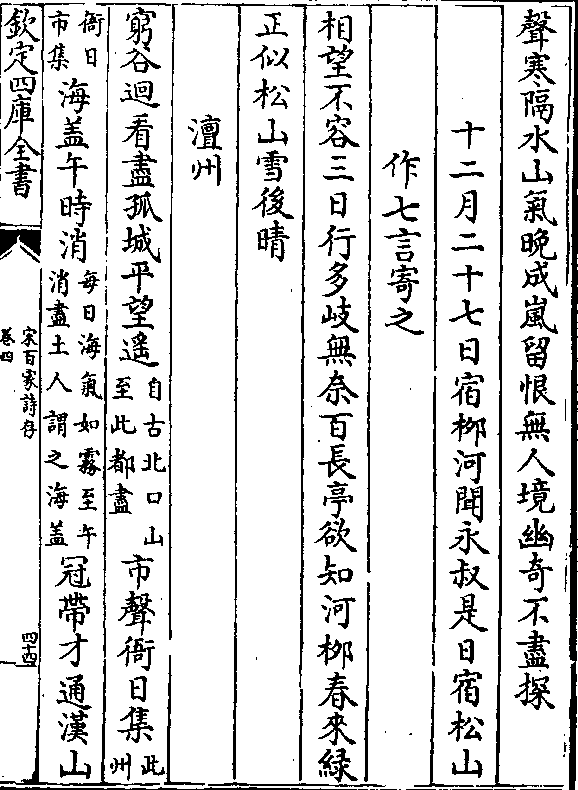 聲寒隔水山氣晚成嵐留恨無人境幽奇不盡探
十二月二十七日宿柳河聞永叔是日宿松山
作七言寄之
相望不容三日行多岐無奈百長亭欲知河柳春來緑
正似松山雪後晴
澶州
窮谷迴看盡孤城平望遥自古北口山至此都盡市聲衙日集此州
衙日市集海盖午時消每日海氣如霧至午消盡土人謂之海盖冠帶才通漢山
欽定四庫全書
宋百家詩存
卷四
四十四